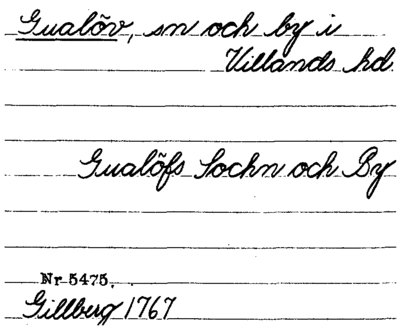 Gualöv, sn och by i
Villands hd.
Gualöfs Sochn och By
Nr 5475.
Gillberg 1767